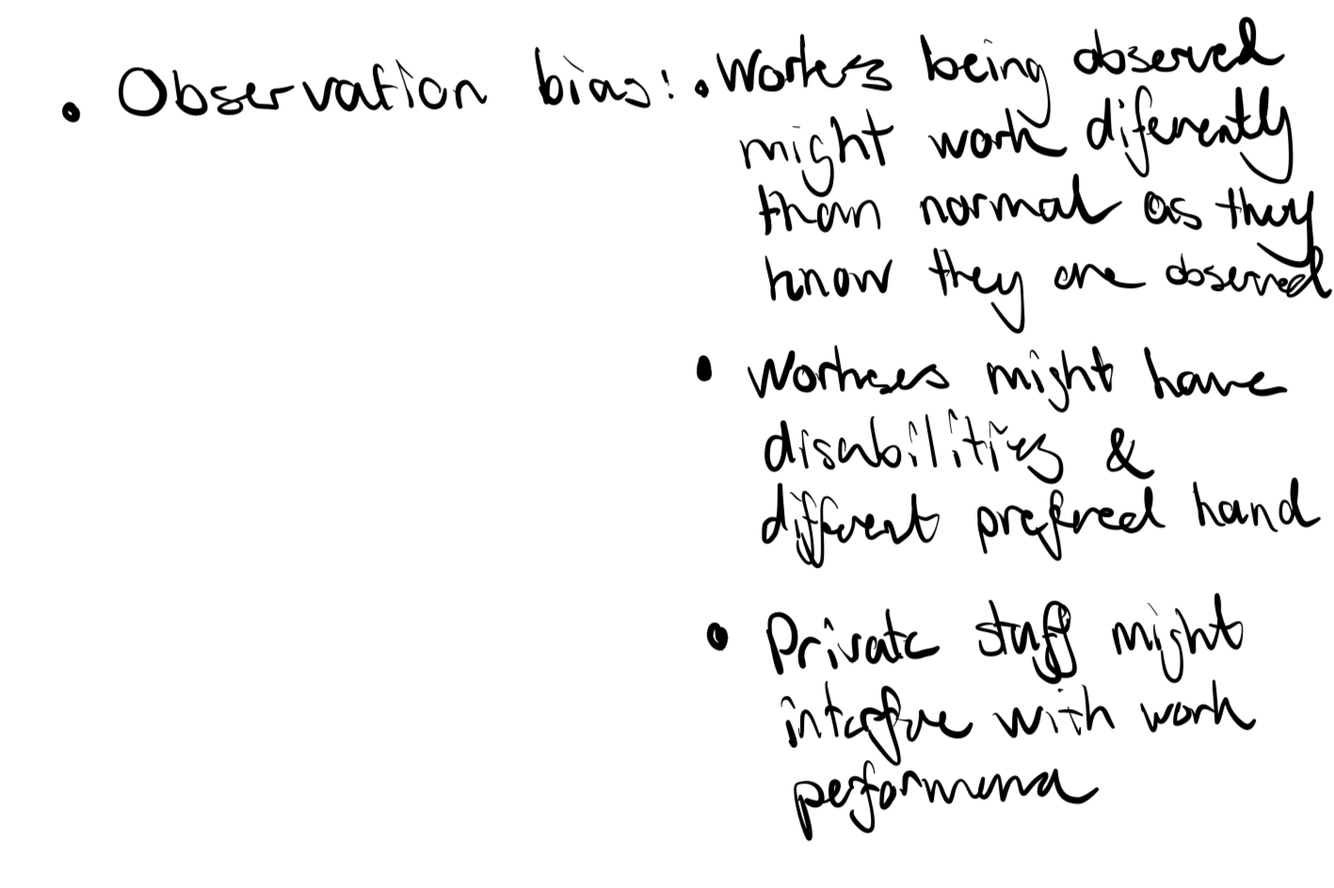 • Observation bias: • Workers being observed
might work diferently
than normal as they
know they are observed
• Workers might have
disabilities &
different prefered hand
• Private stuff might
interfere with work
performance